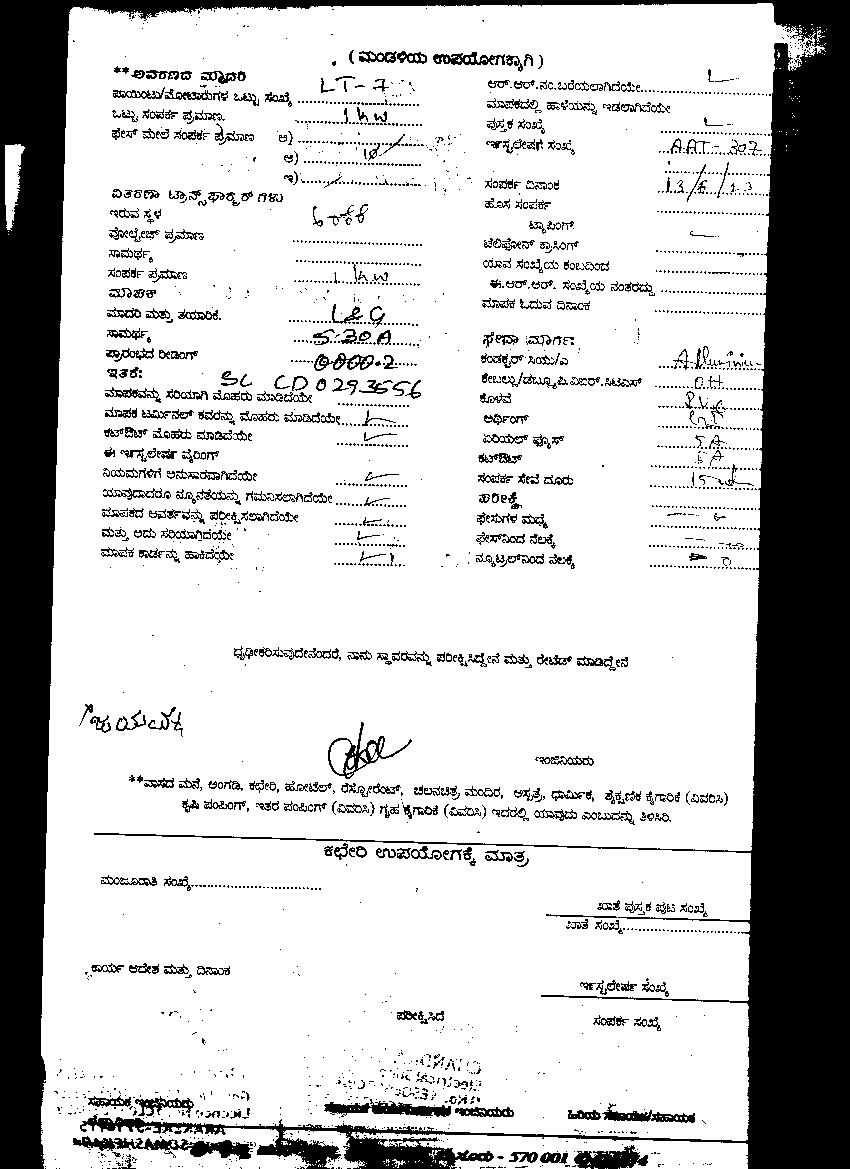 ( ಮಂಡಳಿಯ ಉಪಯೋಗಕ್ಕಾಗಿ )
**ಆವರಣದ ಮಾದರಿ LT-7
ಪಾಯಿಂಟು/ಮೋಟಾರುಗಳ ಒಟ್ಟು ಸಂಖ್ಯೆ
ಒಟ್ಟು ಸಂಪರ್ಕ ಪ್ರಮಾಣ. 1 kw
ಫೇಸ್ ಮೇಲೆ ಸಂಪರ್ಕ ಪ್ರಮಾಣ ಅ)
ಆ)
ಇ)
ವಿತರಣಾ ಟ್ರಾನ್ಸ್‌ಫಾರ್ಮರ್ ಗಳು
ಇರುವ ಸ್ಥಳ
ವೋಲ್ಟೇಜ್ ಪ್ರಮಾಣ
ಸಾಮರ್ಥ್ಯ
ಸಂಪರ್ಕ ಪ್ರಮಾಣ 1 kw
ಮಾಪಕ
ಮಾದರಿ ಮತ್ತು ತಯಾರಿಕೆ. L&G
ಸಾಮರ್ಥ್ಯ 5-30A
ಪ್ರಾರಂಭದ ರೀಡಿಂಗ್ 0000.2
ಇತರೆ: SL CD0293656
ಮಾಪಕವನ್ನು ಸರಿಯಾಗಿ ಮೊಹರು ಮಾಡಿದೆಯೇ
ಮಾಪಕ ಟರ್ಮಿನಲ್ ಕವರನ್ನು ಮೊಹರು ಮಾಡಿದೆಯೇ
ಕಟ್‌ಔಟ್ ಮೊಹರು ಮಾಡಿದೆಯೇ
ಈ ಇನ್ಸ್ಟಲೇಷನ್ ವೈರಿಂಗ್
ನಿಯಮಗಳಿಗೆ ಅನುಸಾರವಾಗಿದೆಯೇ
ಯಾವುದಾದರೂ ನ್ಯೂನತೆಯನ್ನು ಗಮನಿಸಲಾಗಿದೆಯೇ
ಮಾಪಕದ ಆವರ್ತವನ್ನು ಪರೀಕ್ಷಿಸಲಾಗಿದೆಯೇ
ಮತ್ತು ಅದು ಸರಿಯಾಗಿದೆಯೇ
ಮಾಪಕ ಕಾರ್ಡನ್ನು ಹಾಕಿದೆಯೇ
ಆರ್.ಆರ್.ನಂ.ಬರೆಯಲಾಗಿದೆಯೇ
ಮಾಪಕದಲ್ಲಿ ಹಾಳೆಯನ್ನು ಇಡಲಾಗಿದೆಯೇ
ಪುಸ್ತಕ ಸಂಖ್ಯೆ
ಇನ್ಸ್ಟಲೇಷನ್ ಸಂಖ್ಯೆ AAT-307
ಸಂಪರ್ಕ ದಿನಾಂಕ
ಹೊಸ ಸಂಪರ್ಕ
ಟ್ಯಾಪಿಂಗ್
ಟೆಲಿಫೋನ್ ಕ್ರಾಸಿಂಗ್
ಯಾವ ಸಂಖ್ಯೆಯ ಕಂಬದಿಂದ
ಈ.ಆರ್.ಆರ್. ಸಂಖ್ಯೆಯ ನಂತರದ್ದು
ಮಾಪಕ ಓದುವ ದಿನಾಂಕ
ಸೇವಾ ಮಾರ್ಗ:
ಕಂಡಕ್ಟರ್ ಸಿಯು/ಎ
ಕೇಬಲ್ಲು/ಡಬ್ಲ್ಯೂ.ಪಿ.ಐಆರ್.ಸಿಟಿಎಸ್ OH
ಕೊಳವೆ
ಅರ್ಥಿಂಗ್
ಏರಿಯಲ್ ಫ್ಯೂಸ್ 5A
ಕಟ್‌ಔಟ್ 5A
ಸಂಪರ್ಕ ಸೇವೆ ದೂರು
ಪರೀಕ್ಷೆ
ಫೇಸುಗಳ ಮಧ್ಯೆ
ಫೇಸ್‌ನಿಂದ ನೆಲಕ್ಕೆ
ನ್ಯೂಟ್ರಲ್‌ನಿಂದ ನೆಲಕ್ಕೆ
ಧೃಢೀಕರಿಸುವುದೇನೆಂದರೆ, ನಾನು ಸ್ಥಾವರವನ್ನು ಪರೀಕ್ಷಿಸಿದ್ದೇನೆ ಮತ್ತು ರೇಟೆಡ್ ಮಾಡಿದ್ದೇನೆ
ಇಂಜಿನಿಯರು
**ವಾಸದ ಮನೆ, ಅಂಗಡಿ, ಕಛೇರಿ, ಹೋಟೆಲ್, ರೆಸ್ಟೋರೆಂಟ್, ಚಲನಚಿತ್ರ ಮಂದಿರ, ಆಸ್ಪತ್ರೆ, ಧಾರ್ಮಿಕ, ಶೈಕ್ಷಣಿಕ ಕೈಗಾರಿಕೆ (ವಿವರಿಸಿ)
ಕೃಷಿ ಪಂಪಿಂಗ್, ಇತರ ಪಂಪಿಂಗ್ (ವಿವರಿಸಿ) ಗೃಹ ಕೈಗಾರಿಕೆ (ವಿವರಿಸಿ) ಇದರಲ್ಲಿ ಯಾವುದು ಎಂಬುದನ್ನು ತಿಳಿಸಿರಿ.
ಕಛೇರಿ ಉಪಯೋಗಕ್ಕೆ ಮಾತ್ರ
ಮಂಜೂರಾತಿ ಸಂಖ್ಯೆ
ಖಾತೆ ಪುಸ್ತಕ ಪುಟ ಸಂಖ್ಯೆ
ಖಾತೆ ಸಂಖ್ಯೆ
ಕಾರ್ಯ ಆದೇಶ ಮತ್ತು ದಿನಾಂಕ
ಇನ್ಸ್ಟಲೇಷನ್ ಸಂಖ್ಯೆ
ಪರೀಕ್ಷಿಸಿದೆ
ಸಂಪರ್ಕ ಸಂಖ್ಯೆ
ಸಹಾಯಕ ಇಂಜಿನಿಯರು
ಇಂಜಿನಿಯರು
ಹಿರಿಯ ಸಹಾಯಕ/ಸಹಾಯಕ
570 001